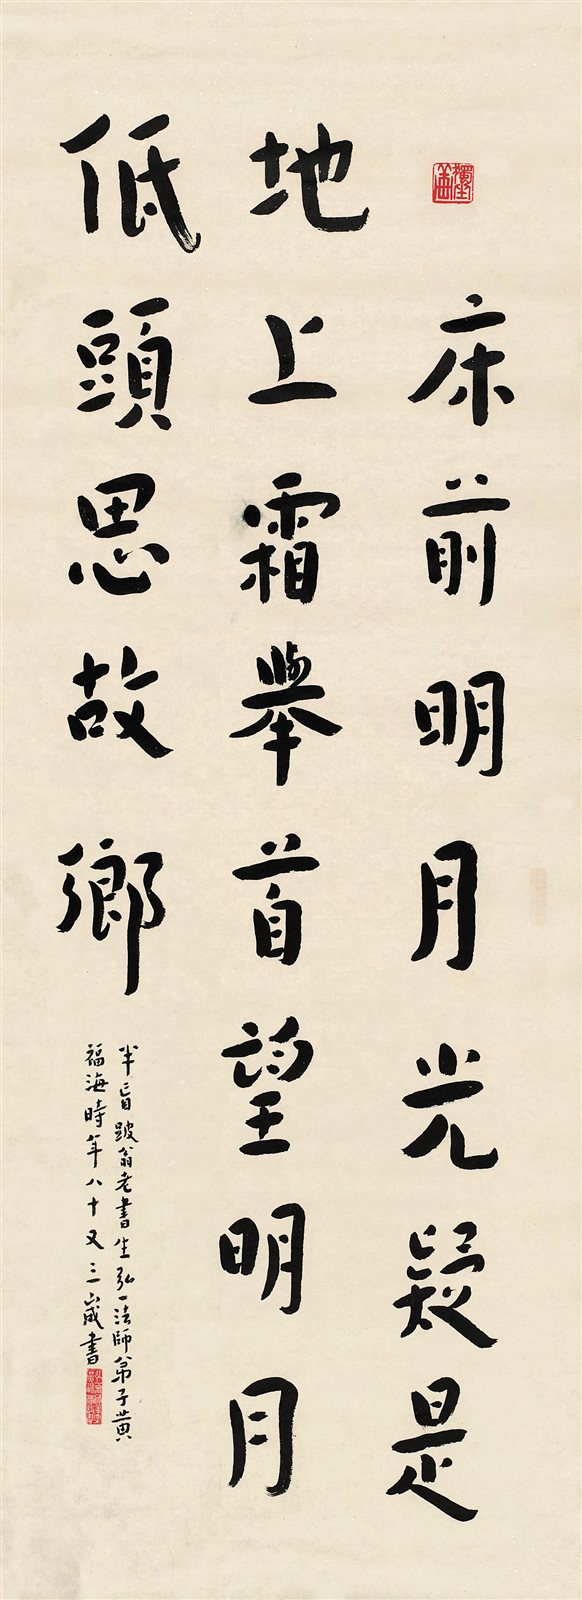 床前明月光疑是
地上霜舉首望明月
低頭思故鄉
半盲跛翁老書生弘一法師弟子黃
福海時年八十又三歲書